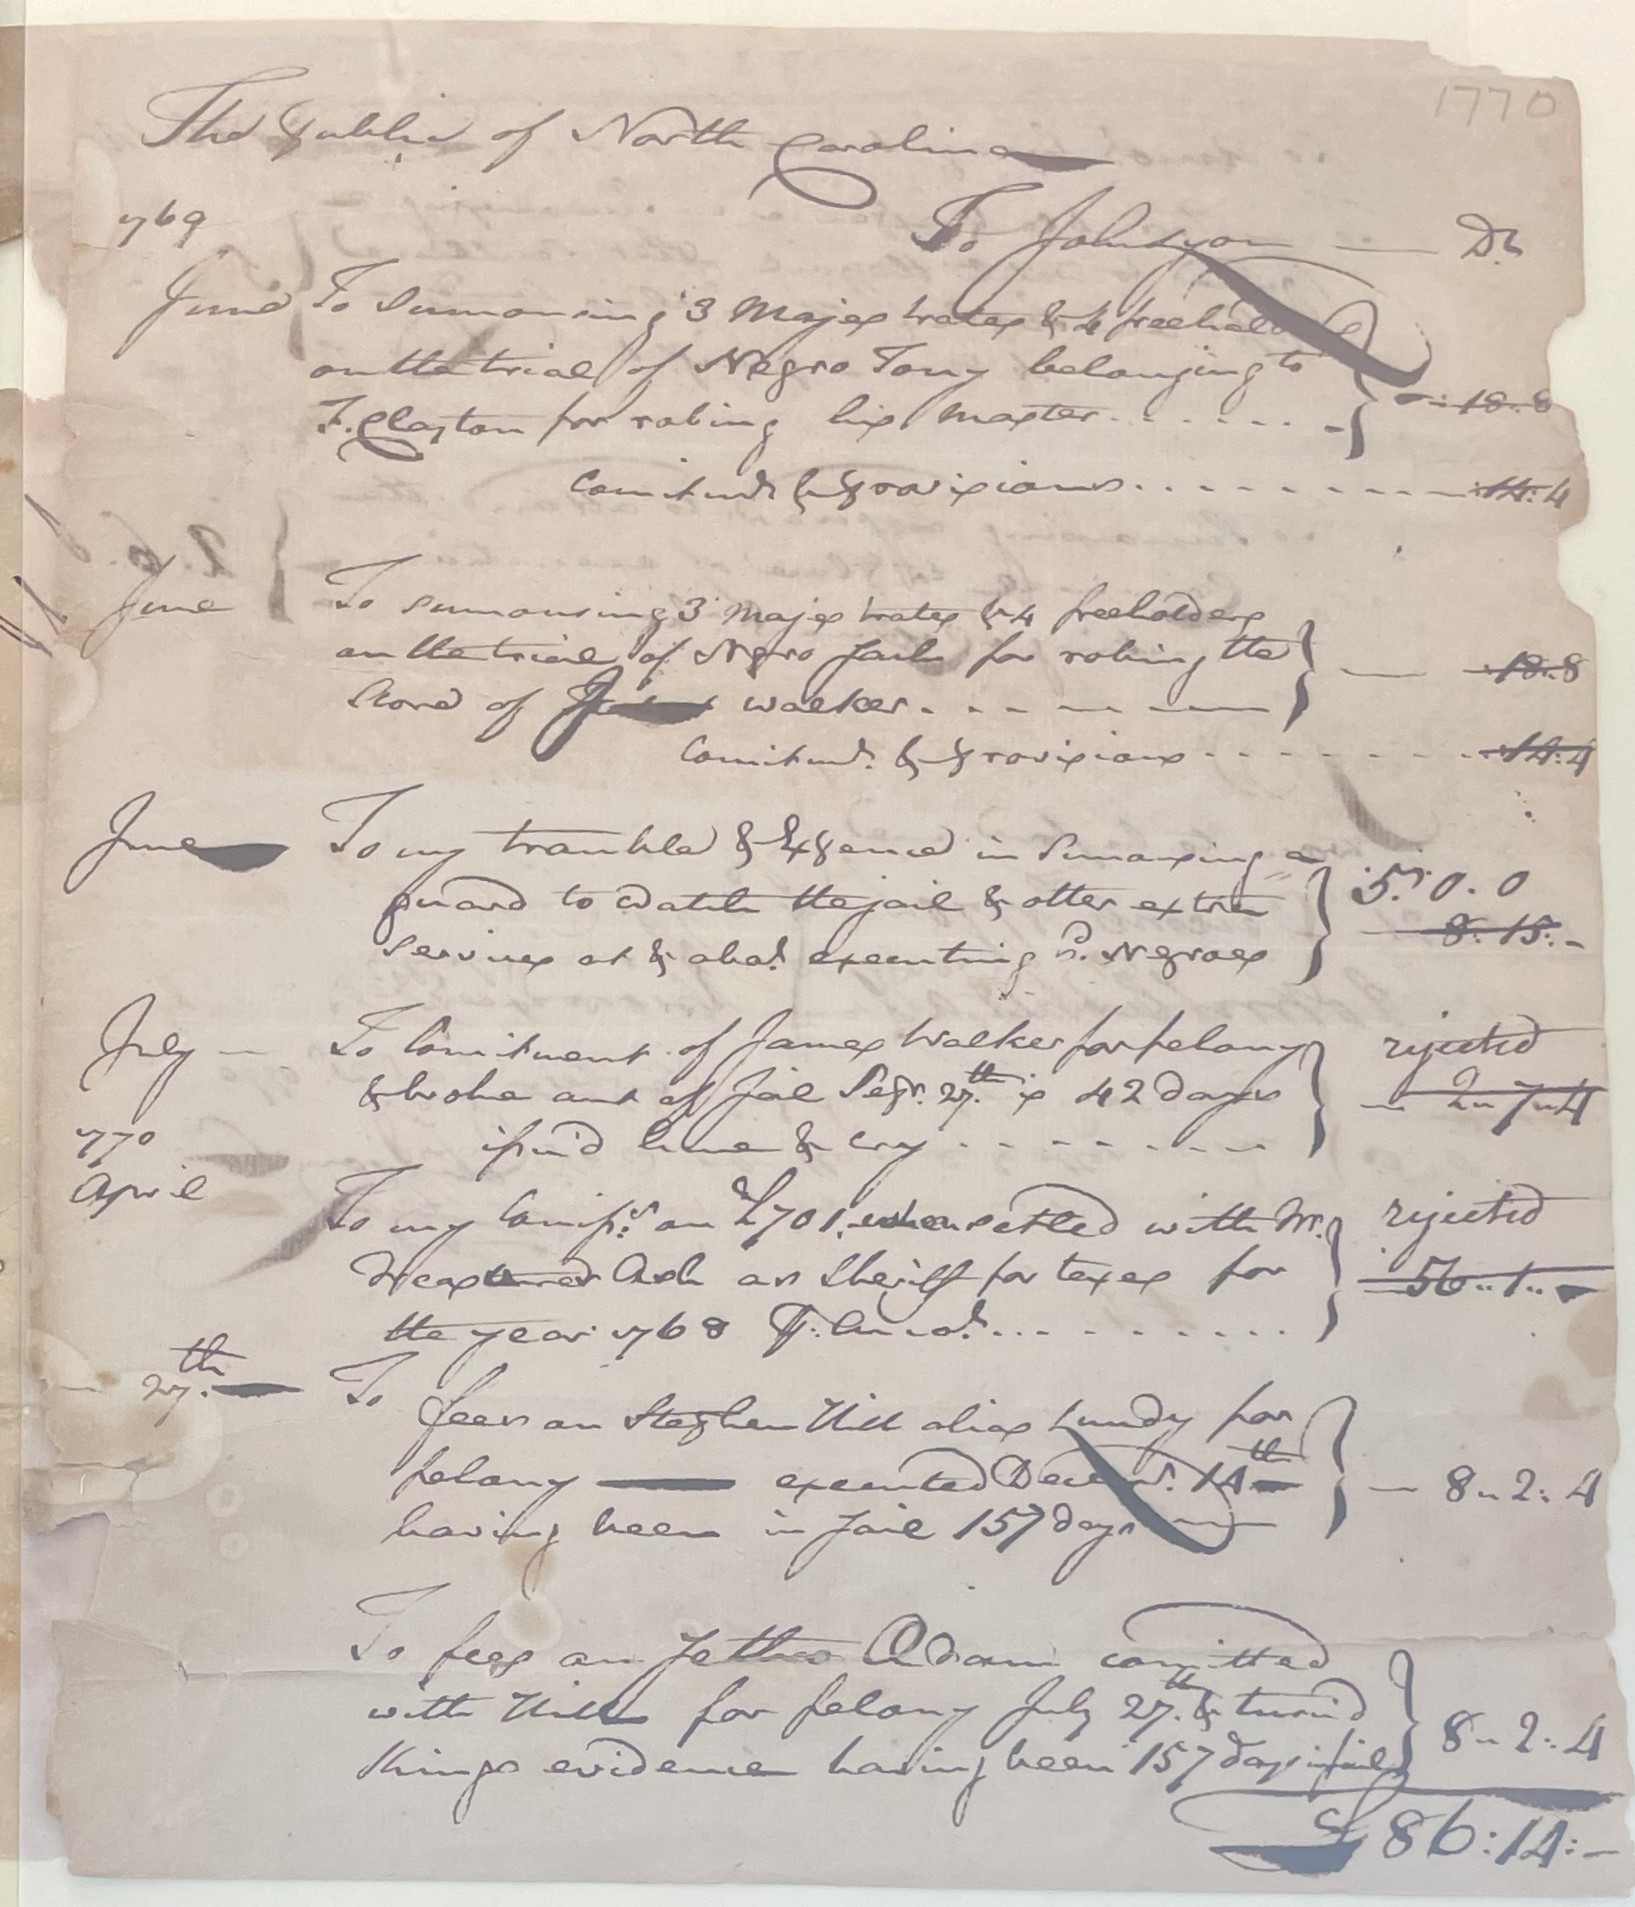 1770
The Public of North Carolina
1769
To John Lyon — Dr
June To Sumonsing 3 Majestrates & 4 freeholders
on the trial of Negro Tony belonging to
F. Clayton for robing his master ...... - 18.8
Comitmt. & provisions .......... 14:4
June To Sumonsing 3 Majestrates & 4 freeholders
on the trial of Negro Jack for robing the
Store of walker ..... — 18.8
Comitmt. & provisions ....... 14:4
June To my trouble & Expence in Sumonsing a
guard to watch the jail & other extra 5"0.0
Services at & abot. executing sd. Negroes 8:15:-
July — To Comitment of James Walker for felony rejected
& broke out of Jail Sepr. 27th. is 42 days — 2"7"4
1770 issu'd hue & cry ........
April
To my Comiss.ns on £701. when setled with Mr. rejected
Treasurer Ash as Sheriff for taxes for — 56"1"-
the year 1768 ..........
27th. — To fees on Stephen Hill alias Lundy for
felony — executed Decemr. 14th — 8"2:4
having been in Jail 157 days
To fees on Jethro Adams comitted
with Hill for felony July 27th. & turn'd
Kings evidence having been 157 days in jail 8"2:4
£86:14:-